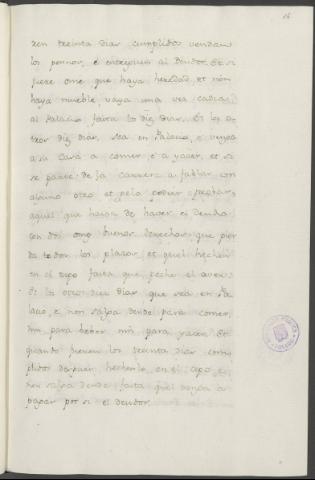 16
xen treinta diaz cumplidos vendan
los pennos, e entreguen al Deudor. Et si
fuere ome que haya heredad, et non
haya mueble, vaya una vez cada dia
al Palacio fasta los diez dias. Et los o-
tros diez dias, sea en Palacio, e venga
a su casa a comer e a yacer, et si
se parte de la carrera a fablar con
alguno otro et gelo podier prestar
aquel que haia de haver el deudo
con dos omes buenos derechos, que pier
da todos los plazos, et quel hechen
en el cepo fasta que peche el aver.
Et los otros diez dias que sea en Pa-
lacio, e non salga dende para comer,
nin para beber nin para yacer. Et
quando fueren los treinta dias com-
plidos despues, hechenlo en el cepo, e
non salga dende fasta quel venga a
pagar por si el deudor.